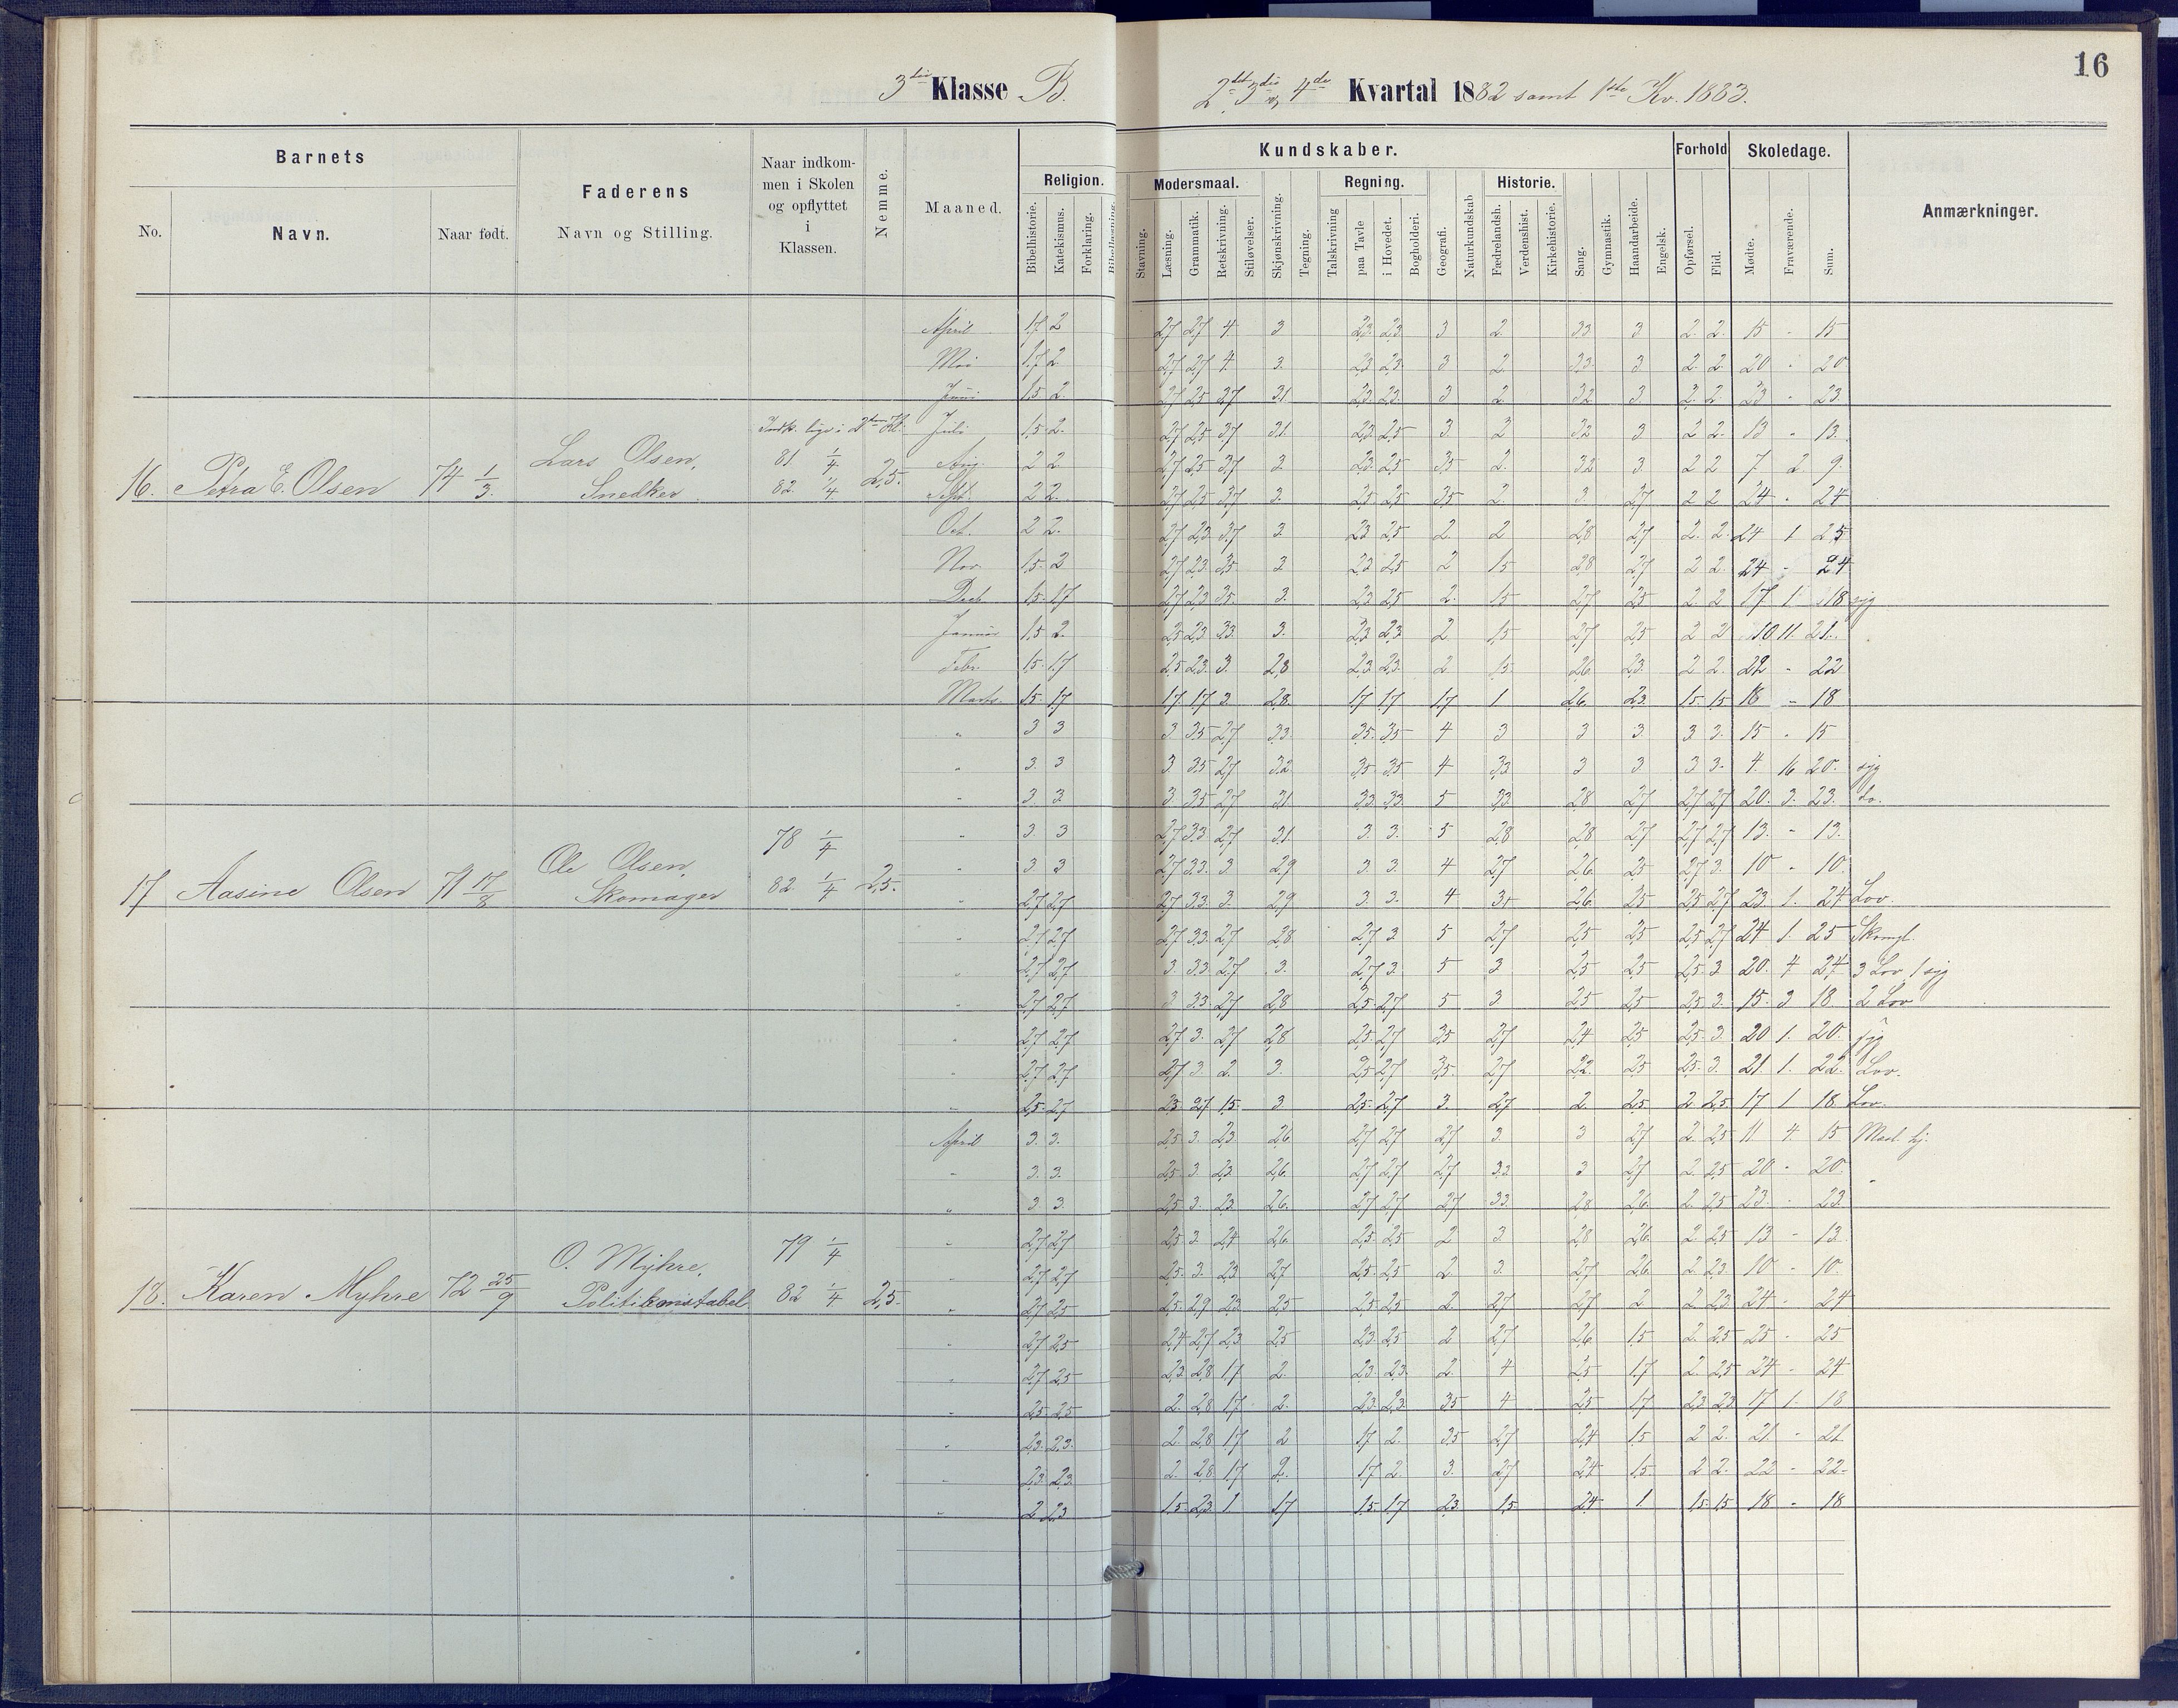 16
3die Klasse B.
2det 3die og 4de Kvartal 1882 samt 1ste Kv. 1883.
Barnets
Faderens
Navn og Stilling.
Naar indkommen i Skolen og opflyttet i Klassen.
Nemme.
Maaned.
Kundskaber.
Forhold
Skoledage.
Anmærkninger.
No.
Navn.
Naar født.
Religion.
Modersmaal.
Regning.
Historie.
Bibelhistorie.
Katekismus.
Forklaring.
Stavning.
Læsning.
Grammatik.
Retskrivning.
Stiløvelser.
Skjønskrivning.
Tegning.
Talskrivning
paa Tavle
i Hovedet.
Bogholderi.
Geografi.
Naturkundskab
Fædrelandsh.
Verdenshist.
Kirkehistorie.
Sang.
Gymnastik.
Haandarbeide.
Engelsk.
Opførsel.
Flid.
Mødte.
Fraværende.
Sum.
April 1,7 2 2,7 2,7 4 3 2,3 2,3 3 2. 3,3 3 2. 2. 15 - 15
Mai 1,7 2 2,7 2,7 4. 3. 2,3 2,3 3 2. 3,3 3 2. 2. 20 - 20
Juni 1,5 2. 2,7 2,5 3,7 3,1 2,3 2,3 3 2. 3,2 3 2. 2. 23 - 23
Indk. lige i 2den Kl. Juli 1,5 2. 2,7 2,5 3,7 3,1 2,3 2,5 3. 2 3,2 3 2 2. 13 - 13.
Lars Olsen, 81 1/4 Aug. 2 2. 2,7 2,5 3,7 3. 2,3 2,5 3,5 2. 3,2 3. 2 2 7 2. 9.
16. Petra E. Olsen 74 1/3. Snedker 82. 1/4 2,5. Sept. 2 2. 2,7 2,5 3,7 3. 2,5 2,5 3,5 2. 3 2,7 2 2 24 - 24
Oct. 2 2. 2,7 2,3 3,7 3. 2,3 2,5 2. 2 2,8 2,7 2. 2. 24 1 25
Nov. 1,5 2 2,7 2,3 3,5 3 2,3 2,5 2 1,5 2,8 2,7 2 2. 24 - 24
Decb. 1,5 1,7 2,7 2,3 3,5 3. 2,3 2,5 2. 1,5 2,7 2,5 2. 2 17 1. 18 syg
Januar 1,5 2. 2,5 2,3 3,3 3. 2,3 2,3 2. 1,5 2,7 2,5 2 2 10 11. 21.
Febr. 1,5 1,7 2,5 2,3 3. 2,8 2,3 2,3 2 1,5 2,6 2,3 2 2. 22 - 22
Marts. 1,5 1,7 1,7 1,7 3. 2,8. 1,7 1,7 1,7 1 2,6 2,3 1,5 1,5 18 - 18
" 3 3 3. 3,5 2,7 3,3. 3,5 3,5 4 3 3 3 3 3. 15 - 15
" 3. 3 3. 3,5 2,7 3,2 3,5 3,5 4 3,3 3 3 3 3. 4. 16 20. syg
" 3. 3. 3. 3,5 2,7 3,1 3,3 3,3 5 3,3 2,8 2,7 2,7 2,7 20. 3. 23. do.
78 1/4 " 3. 3 2,7 3,3 2,7 3,1. 3. 3. 5 2,8 2,8 2,7 2,7 2,7 13. - 13.
Ole Olsen, " 3. 3 2,7 3,3 3. 2,9 3. 3. 4 2,7 2,6 2,5 2,7 3. 10 - 10.
17 Aasine Olsen 71 17/8 Skomager 82 1/4 2,5. " 2,7 2,7 2,7 3,3 3. 2,9 3. 3. 4 3+ 2,6 2,5 2,5 2,7 23 1. 24 Lov.
" 2,7 2,7 2,7 3,3 2,7 2,8 2,7 3 5 2,7 2,5 2,5 2,5 2,7 24 1. 25
" 2,7 2,7 3. 3,3 2,7 3. 2,7 3 5 3 2,5 2,5 2,5 3 20. 4 24 3 Lov 1 syg
" 2,7 2,7 3 3,3 2,7 2,8 2,5 2,7 5 3 2,5 2,5 2,5 3. 15. 3 18 2 Lov
" 2,7 2,7 2,7 3. 2,7 2,8 2,5 2,7 3,5 2,7 2,4 2,5 2,5 3. 20 1. 20. syg
" 2,7 2,7 2,7 3. 2. 3. 2,5 2,7 3,5. 2,7 2,2 2,5 2,5 3. 21 1. 22. Lov.
" 2,5 2,7 2,3 2,7 1,5 3 2,5 2,7 3. 2,7 2. 2,5 2. 2,5 17 1 18 Lov.
April 3. 3. 2,5 3. 2,3. 2,6 2,7 2,7 2,7 3. 3 2,7 2. 2,5 11 4. 15
" 3. 3. 2,5 3. 2,3 2,6. 2,7 2,7 2,7 3,2 3 2,7 2. 2,5 20 - 20.
" 3 3. 2,5 3. 2,3 2,6. 2,7 2,7 2,7 3,3. 2,8 2,6 2. 2,5 23. - 23.
79 1/4 " 2,7 2,7 2,5 3. 2,4 2,6 2,5 2,5 2 3 2,8 2,6 2. 2,5 13 - 13
O. Myhre, " 2,7 2,7 2,5 3. 2,3 2,7 2,5 2,5 2. 3. 2,7 2,6 2. 2,3. 10 - 10.
18. Karen Myhre 72 25/9 Politikonstabel 82 1/4 2,5. " 2,7 2,5 2,5 2,9 2,3. 2,5 2,5 2,5 2. 2,7 2,7 2 2 2,3 24 - 24
" 2,7 2,5 2,4 2,7 2,3 2,5 2,3 2,5 2 2,7 2,6 1,5 2. 2,5 25 - 25
" 2,7 2,5 2,3 2,8 1,7 2. 2,3 2,3. 2. 4 2,5 1,7 2. 2,5 24 - 24
" 2,5 2,5 2. 2,8 1,7 2. 2,3 2,3 3,5 4 2,5 1,7 2,3 2,3 17 1. 18
" 2,3. 2,3. 2. 2,8 1,7 2 1,7 2. 3,5 2,7 2,4 1,5 2 2. 21 - 21
" 2,3. 2,3. 2. 2,8 1,7 2. 1,7 2. 3. 2,7 2,4 1,5. 2 2. 22 - 22
" 2 2,3 1,5 2,3 1. 1,7 1,5 1,7 2,3 1,5 2,4 1. 1,5 1,5 18 - 18